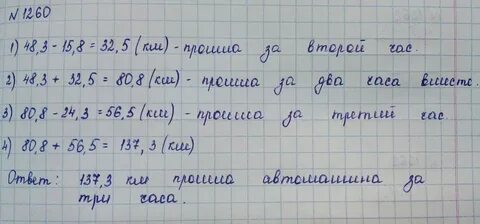 №1260
1) 48,3 - 15,8 = 32,5 (км) - прошла за второй час.
2) 48,3 + 32,5 = 80,8 (км) - прошла за два часа вместе.
3) 80,8 - 24,3 = 56,5 (км) - прошла за третий час.
4) 80,8 + 56,5 = 137,3 (км)
Ответ: 137,3 км прошла автомашина за
три часа.